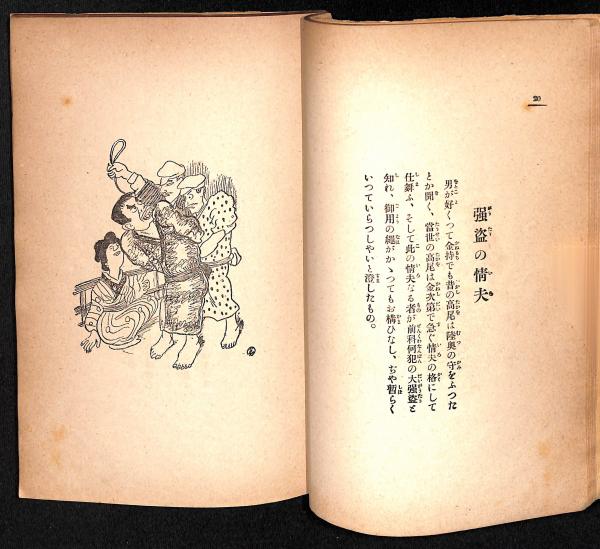 20
强盗の情夫
男が好くつて金持でも昔の高尾は陸奥の守をふつた
とか聞く、當世の高尾は金次第で急ぐ情夫の格にして
仕舞ふ、そして此の情夫なる者が前科何犯の大强盗と
知れ、御用の繩がかゝつてもお構ひなし、ぢや暫らく
いつていらつしやいと澄したもの。